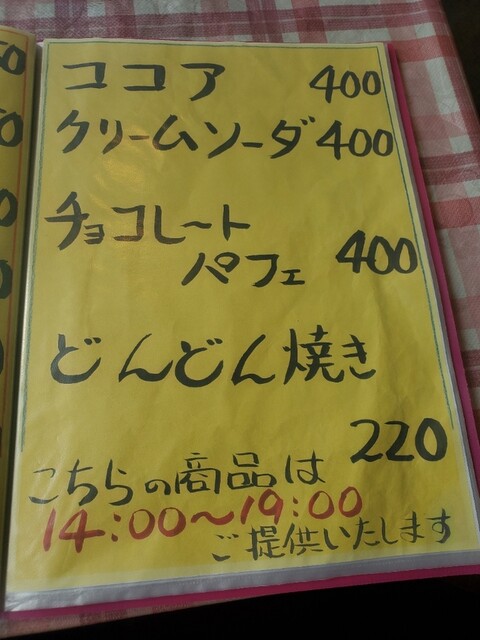 ココア 400
クリームソーダ 400
チョコレート
パフェ 400
どんどん焼き
220
こちらの商品は
14:00〜19:00
ご提供いたします